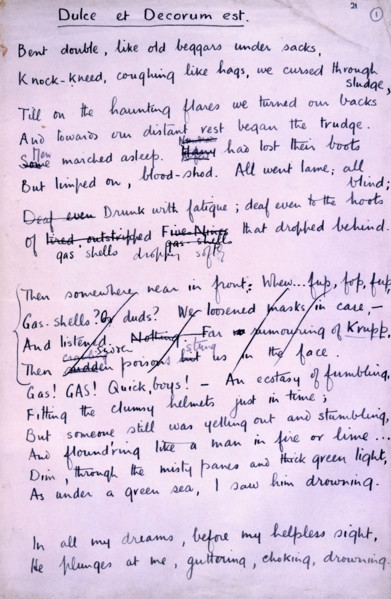 21
1
Dulce et Decorum est.
Bent double, like old beggars under sacks,
Knock-kneed, coughing like hags, we cursed through
sludge,
Till on the haunting flares we turned our backs
And towards our distant rest began the trudge.
Men
Some marched asleep. Many had lost their boots
But limped on, blood-shod. All went lame; all
blind;
Deaf even Drunk with fatigue; deaf even to the hoots
Of tired, outstripped Five-Nines that dropped behind.
gas shells dropping softly gas-shells
Then somewhere near in front: Whew... fup, fop, fup
Gas-shells? Or duds? We loosened masks in case, –
And listened. Nothing. Far rumouring of Krupp,
stung
Then sudden poisons us in the face.
Gas! GAS! Quick, boys! – An ecstasy of fumbling,
Fitting the clumsy helmets just in time;
But someone still was yelling out and stumbling,
And flound'ring like a man in fire or lime...
Dim, through the misty panes and thick green light,
As under a green sea, I saw him drowning.
In all my dreams, before my helpless sight,
He plunges at me, guttering, choking, drowning.